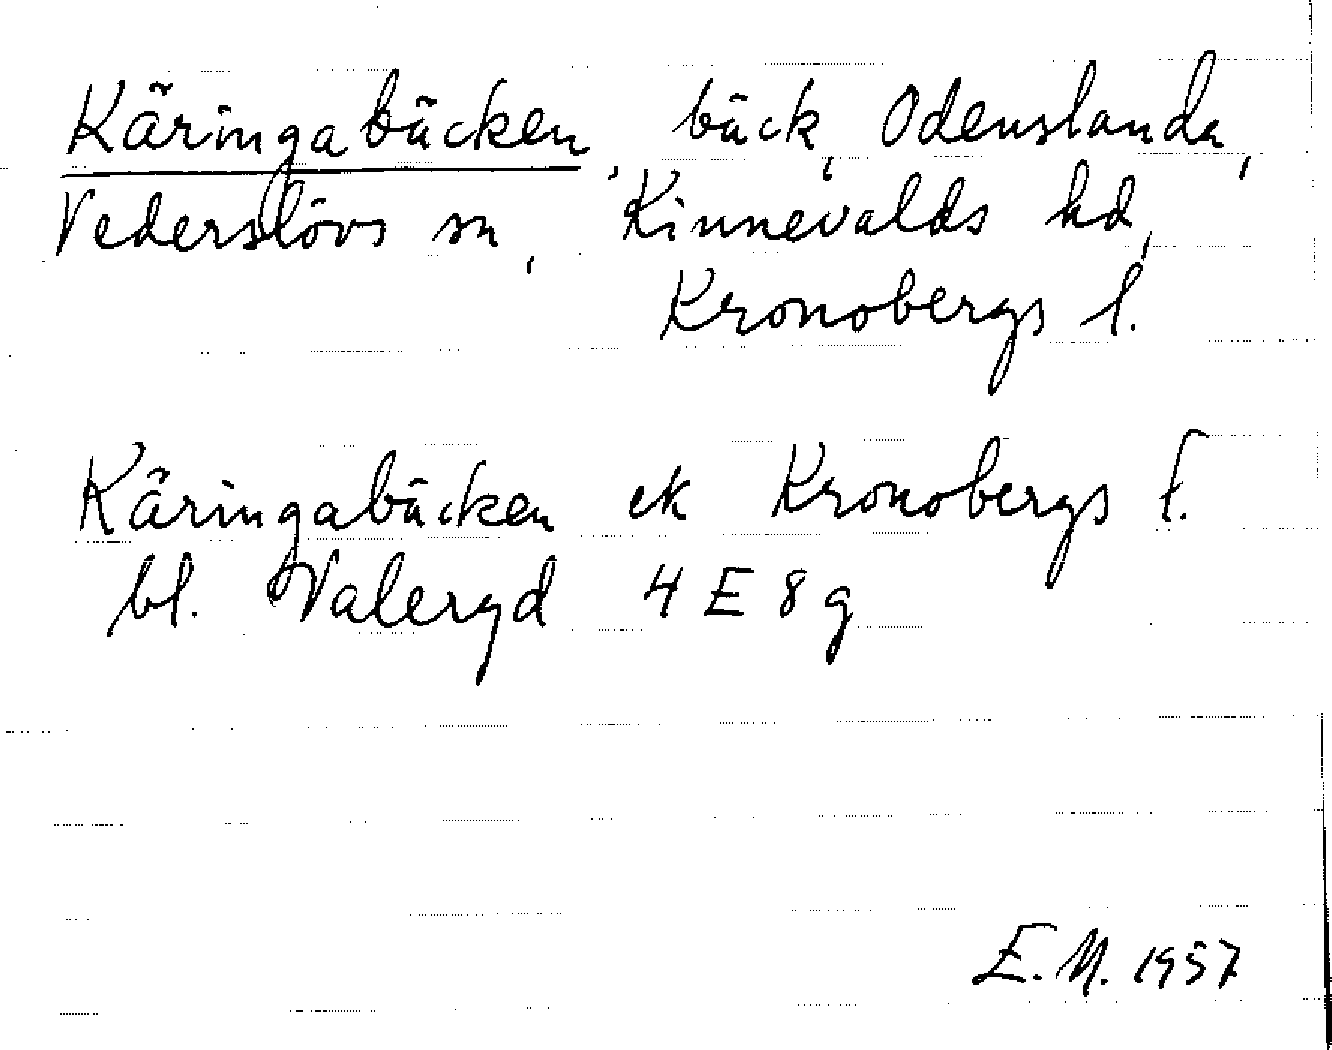 Käringabäcken, bäck, Odenslanda,
Vederslövs sn, Kinnevalds hd,
Kronobergs l.
Käringabäcken ek Kronobergs l.
bl. Valeryd 4 E 8 g
E.M. 1957